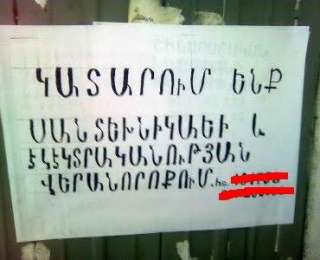 ԿԱՏԱՐՈՒՄ ԵՆՔ
ՍԱՆՏԵԽՆԻԿԱԵՒ և
ԷԼԵԿՏՐԱԿԱՆՈՒԹՅԱՆ
ՎԵՐԱՆՈՐՈՔՈՒՄ. հռ.